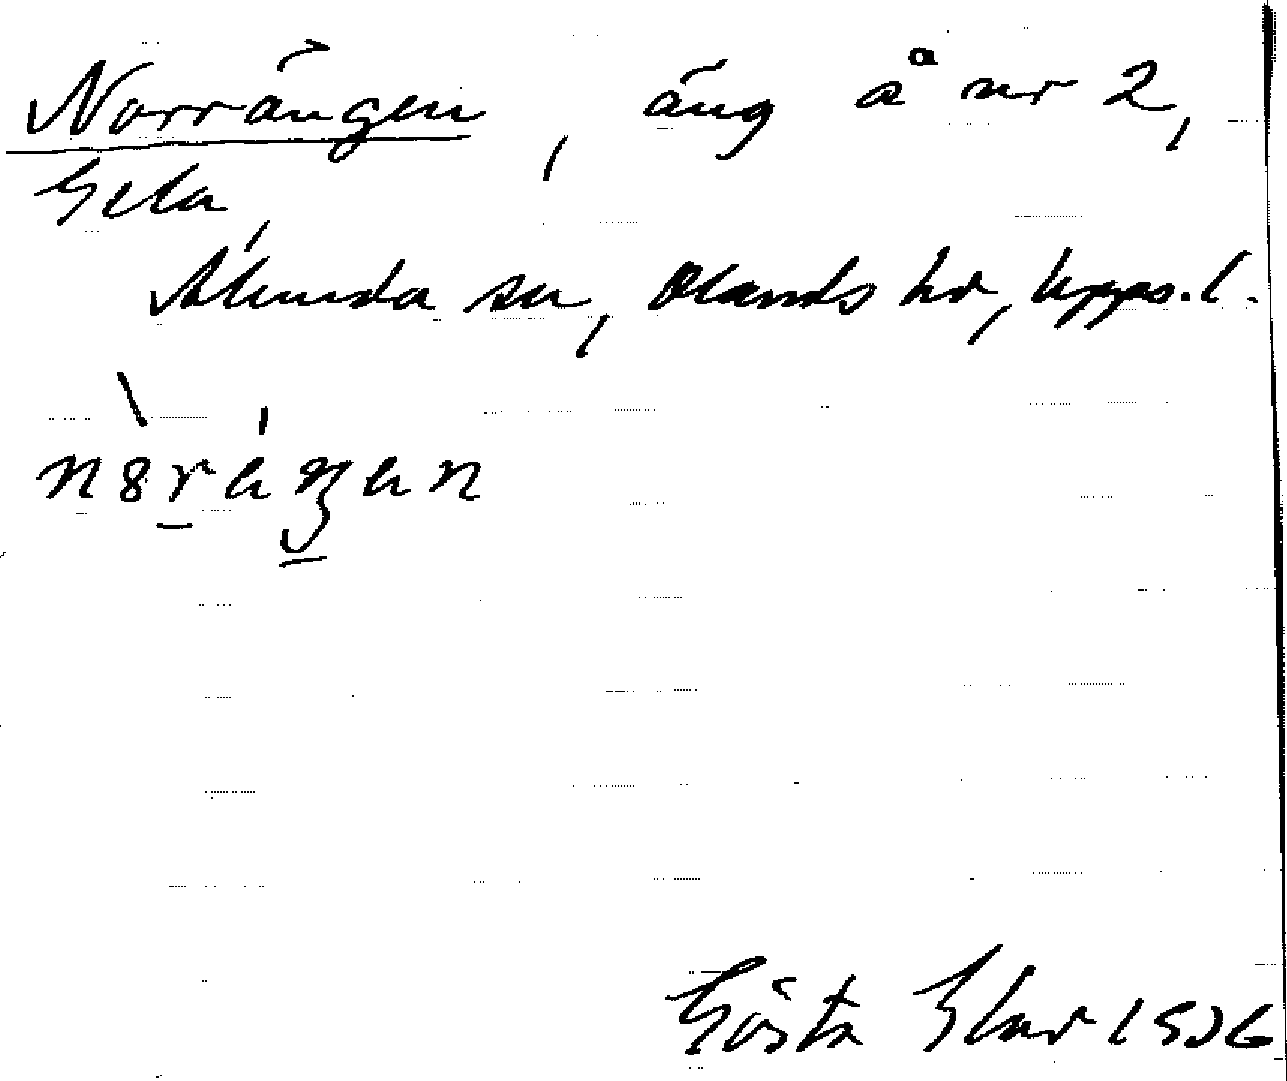 Norrängen, äng å nr 2,
Gela,
Alunda sn, Olands hd, Upps. l.
Gösta 1936